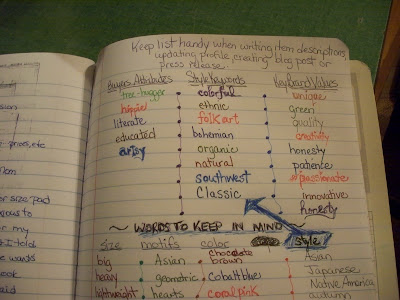 Keep list handy when writing item descriptions,
updating profile, creating blog post or
press release.
Buyers Attributes Style Keywords Key Brand Values
tree-hugger colorful unique
hippie ethnic green
literate folk art quality
educated bohemian creativity
artsy organic honesty
natural patience
southwest passionate
Classic innovative
honesty
~ WORDS TO KEEP IN MIND ~
size motifs color Style
big Asian chocolate brown Asian
heavy geometric Cobalt blue Japanese
lightweight hearts coral pink Native America
autumn
or size pad
or my
I told